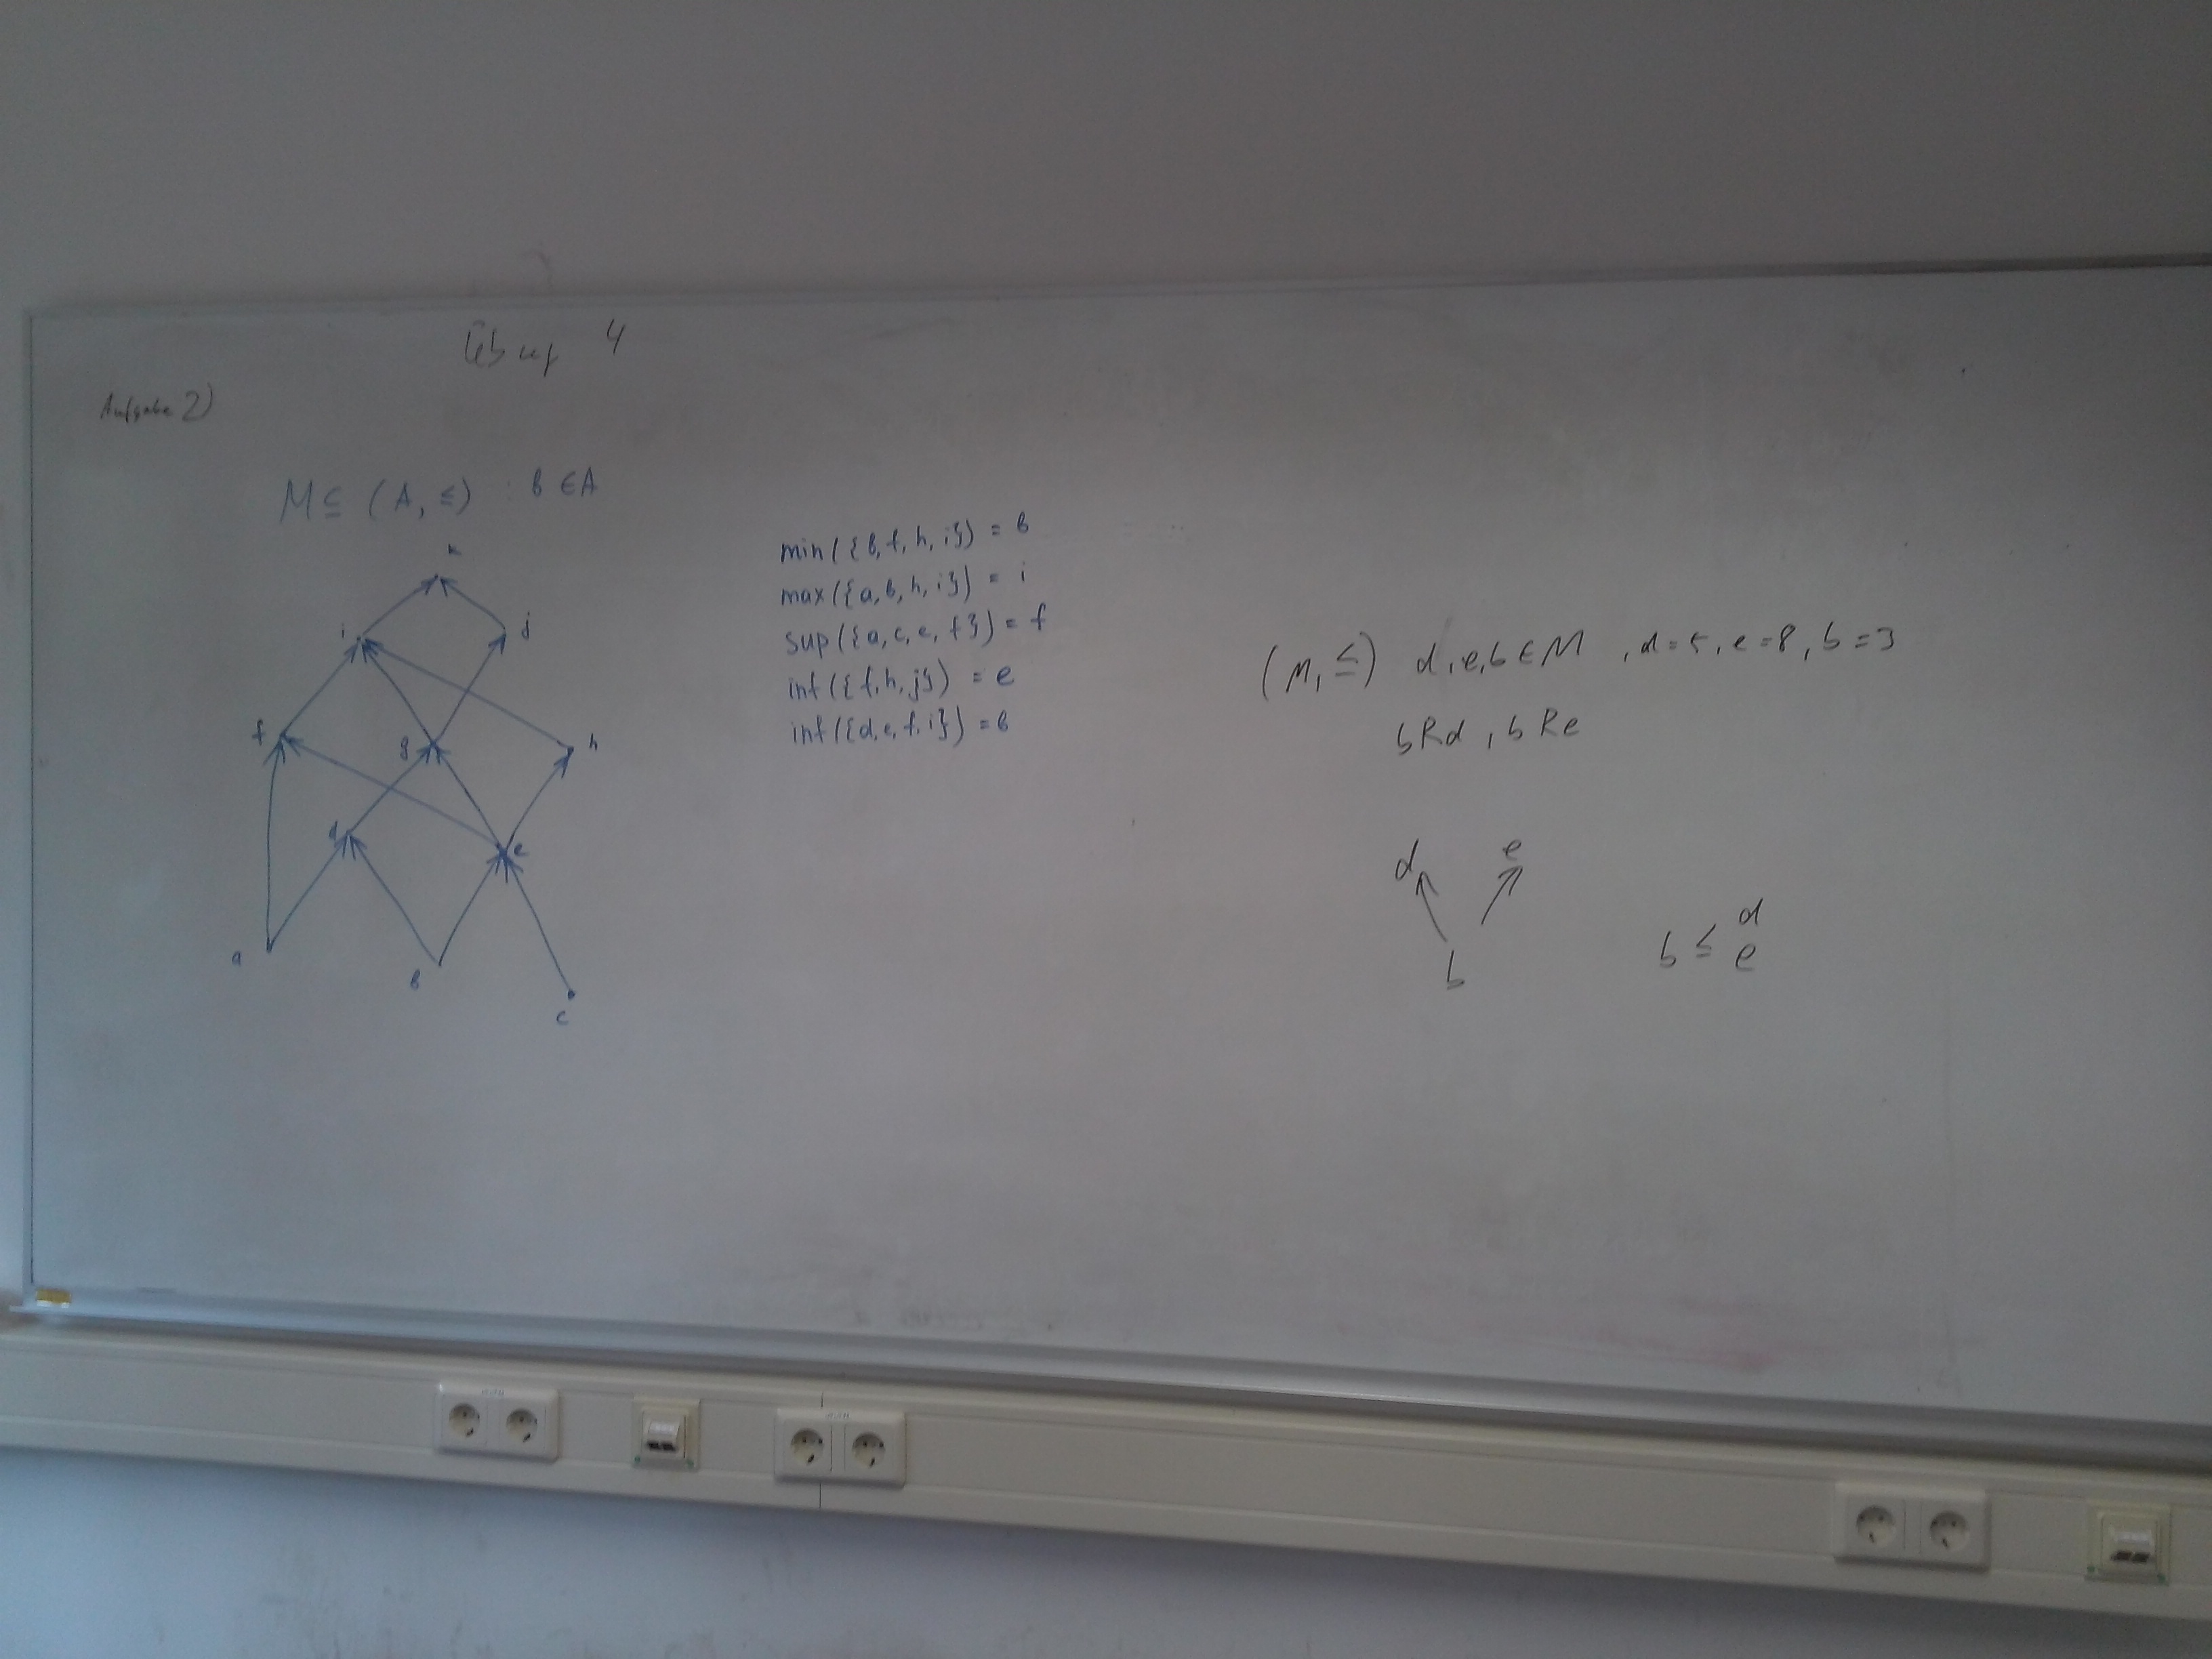 Übung 4
Aufgabe 2)
M ⊆ (A, ≤) : b ∈ A
k
i
j
f
g
h
d
e
a
b
c
min({b, f, h, i}) = b
max({a, b, h, i}) = i
sup({a, c, e, f}) = f
inf({f, h, j}) = e
inf({d, e, f, i}) = b
(M, ≤) d, e, b ∈ M , d = 5, e = 8, b = 3
bRd , bRe
d e
b
b ≤ d
e